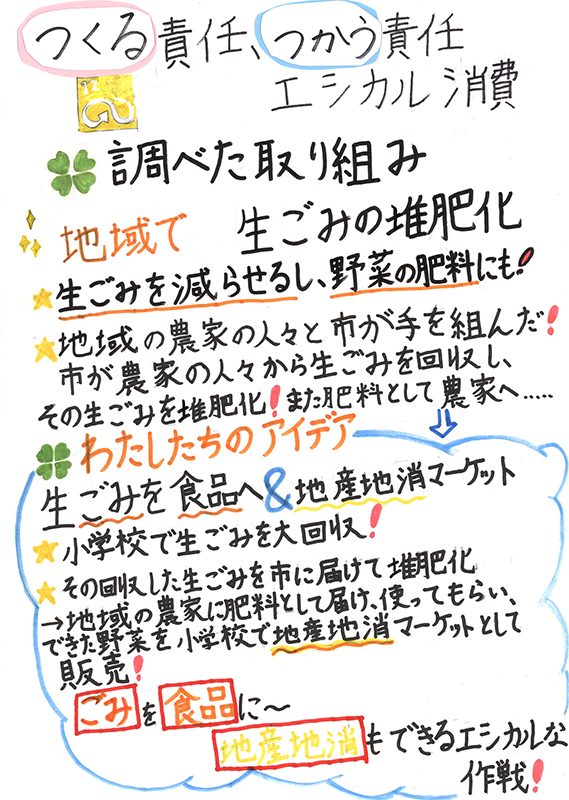 つくる責任、つかう責任
エシカル消費
12
調べた取り組み
地域で 生ごみの堆肥化
生ごみを減らせるし、野菜の肥料にも!
地域の農家の人々と市が手を組んだ!
市が農家の人々から生ごみを回収し、
その生ごみを堆肥化!また肥料として農家へ.....
わたしたちのアイデア
生ごみを食品へ&地産地消マーケット
小学校で生ごみを大回収!
その回収した生ごみを市に届けて堆肥化
→地域の農家に肥料として届け、使ってもらい、
できた野菜を小学校で地産地消マーケットとして
販売!
ごみを食品に〜
地産地消もできるエシカルな
作戦!